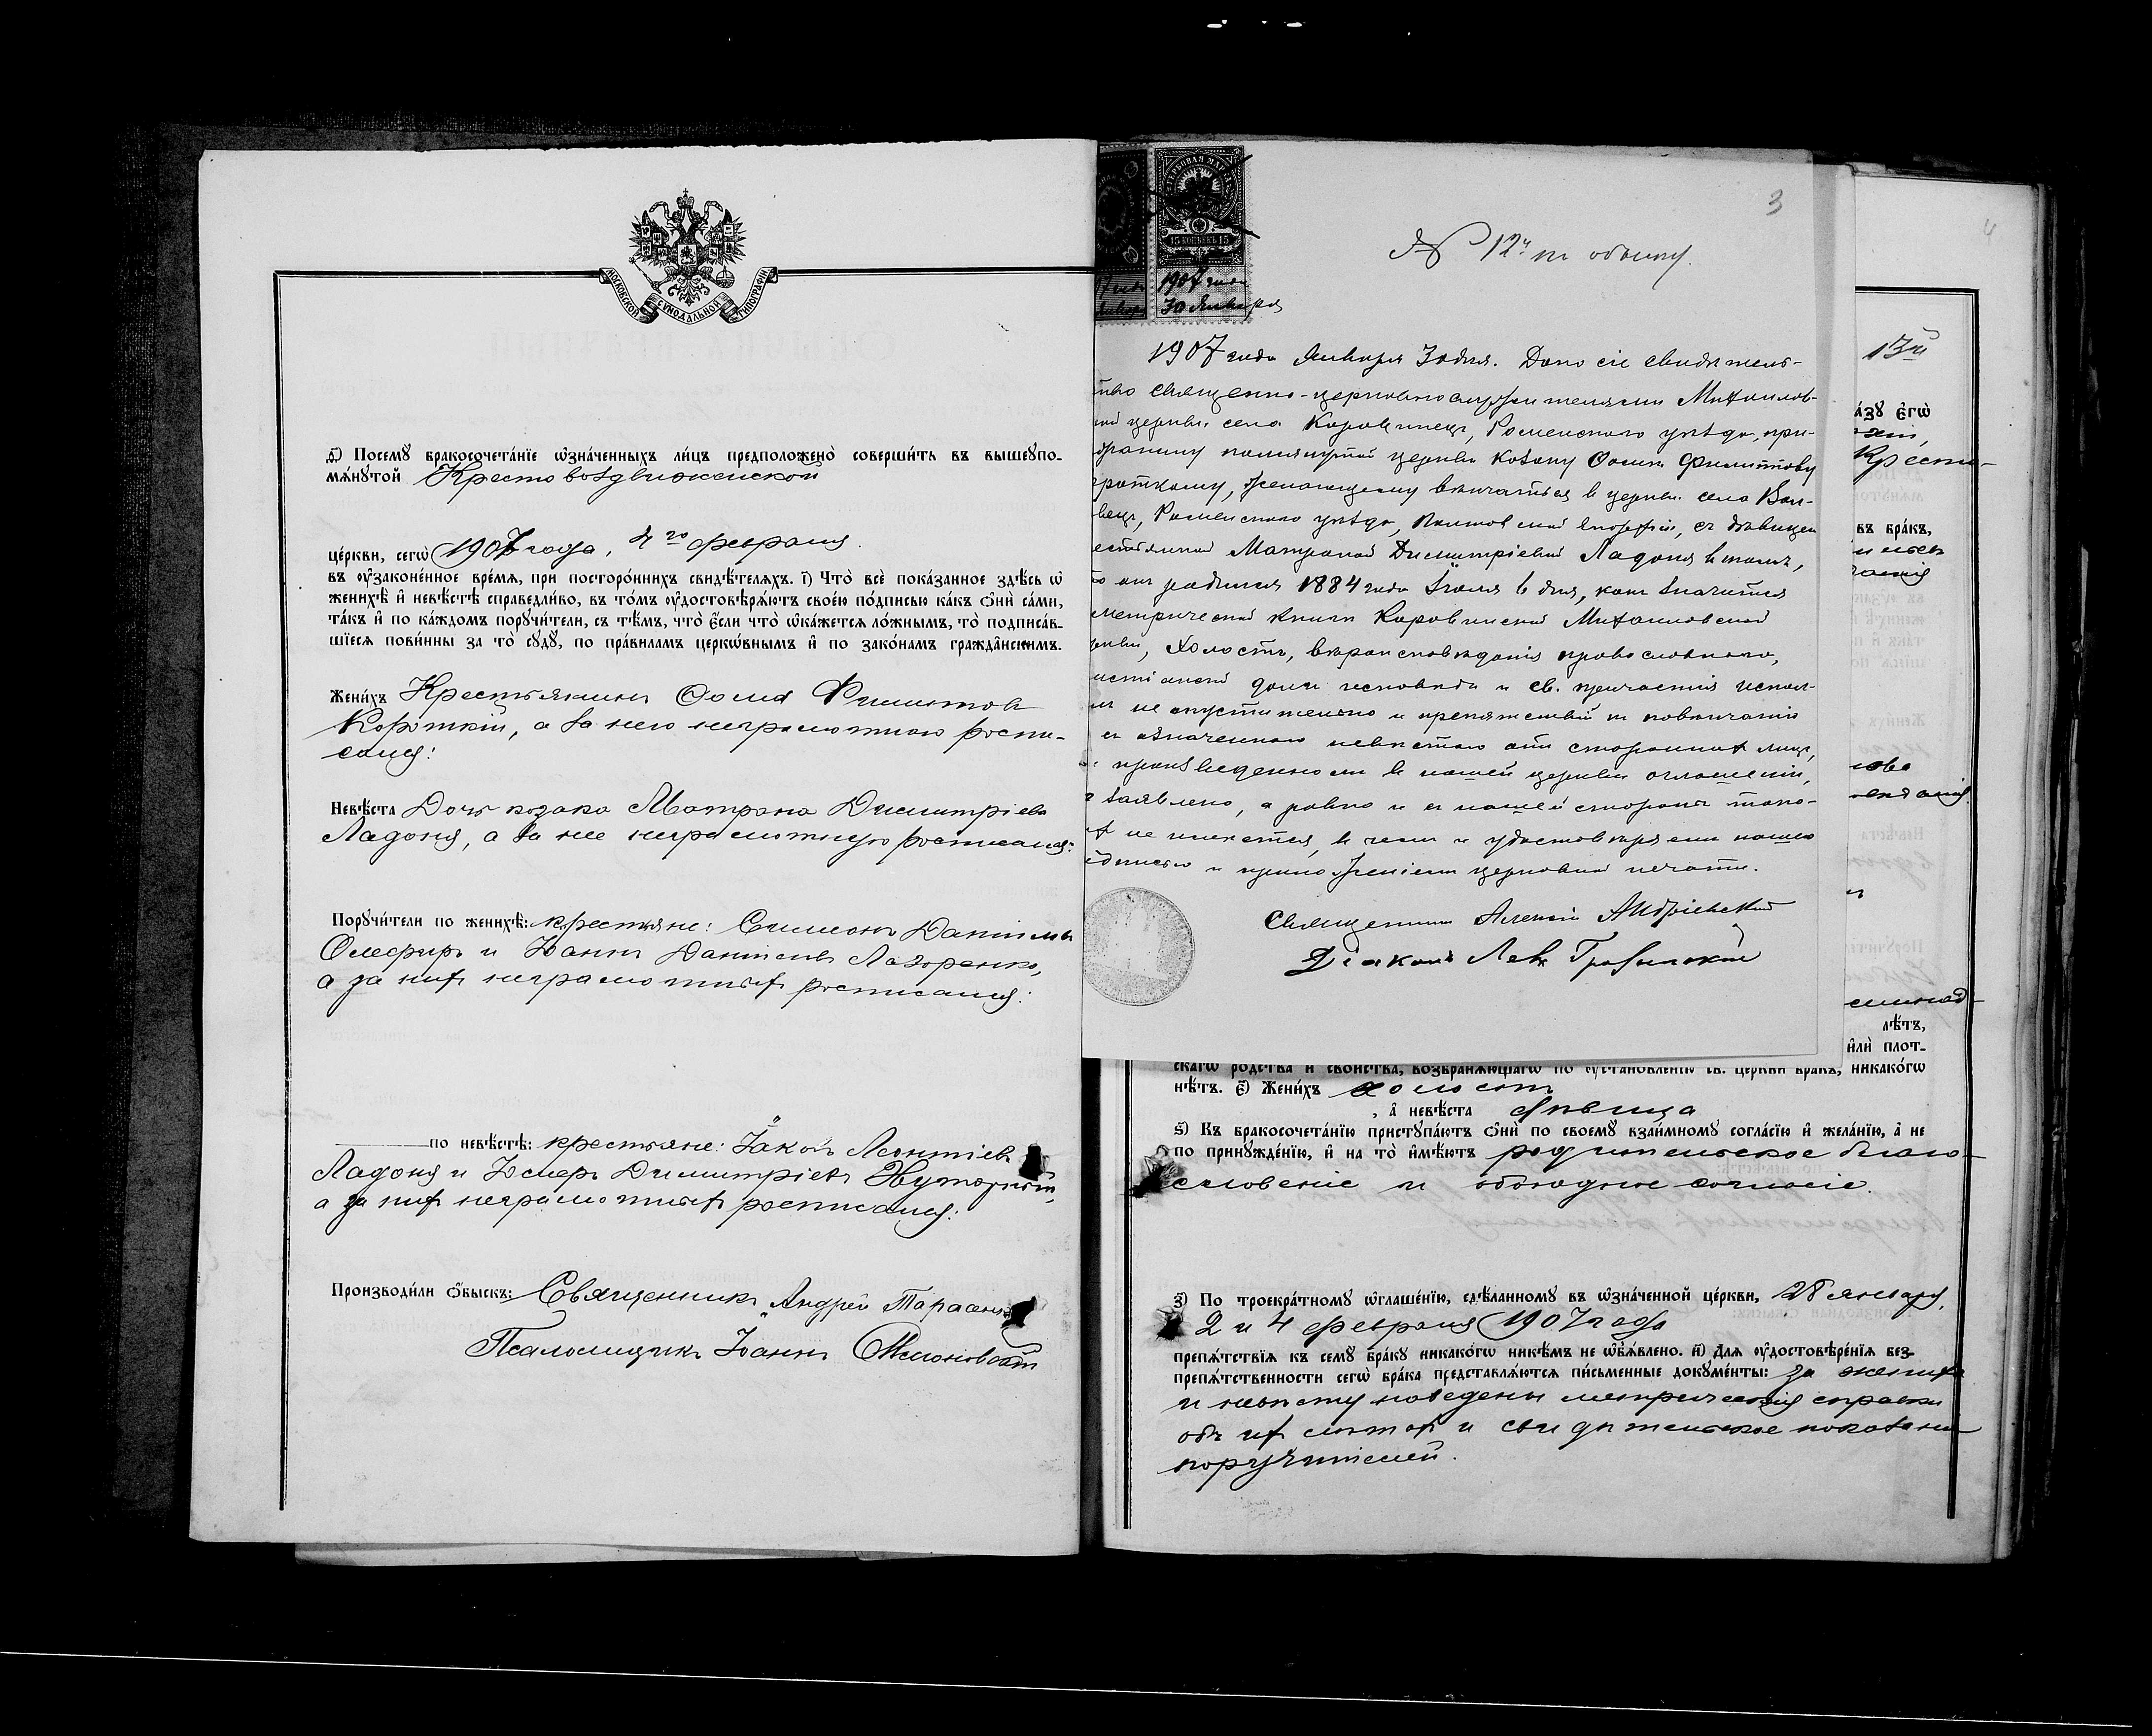 МОСКОВСКОЙ СУНОДАЛЬНОЙ ТИПОГРАФІИ
д҃) Посемꙋ бракосочета́нїе ѡ҆зна́ченныхъ ли́цъ предположено̀ соверши́ть въ вышеупо-
мѧ́нꙋтой Крестовоздвиженской
це́ркви, сегѡ̀ 1907 года, 4го февраля.
въ ᲂу҆законе́нное вре́мѧ, при посторо́ннихъ свидѣ́телѧхъ. і҃) Что̀ всѐ пока́занное здѣ́сь ѡ҆
женихѣ̀ и҆ невѣ́стѣ справедли́во, въ то́мъ ᲂу҆достовѣрѧ́ютъ свое́ю по́дписью ка́къ ѻ҆нѝ са́ми,
та́къ и҆ по ка́ждомъ порꙋчи́тели, съ тѣ́мъ, что̀ є҆́сли что̀ ѡ҆ка́жетсѧ ло́жнымъ, то̀ подписа́в-
шїесѧ пови́нны за то̀ сꙋдꙋ̀, по пра́виламъ церкѡ́внымъ и҆ по зако́намъ гражда́нскимъ.
Жени́хъ Крестьянинъ Ѳома Филиповъ
Короткій, а за него неграмотнаго роспи-
сался:
Невѣ́ста Дочь козака Матрона Димитріева
Ладоня, а за нее неграмотную росписался:
Порꙋчи́тели по женихѣ̀: крестьяне: Симеонъ Даніиловъ
Олефиръ и Іоаннъ Даніиловъ Лазоренко,
а за нихъ неграмотныхъ росписался:
по невѣ́стѣ: крестьяне: Іаковъ Леонтіевъ
Ладоня и Іосифъ Димитріевъ
а за нихъ неграмотныхъ росписался:
Производи́ли ѻ҆́быскъ: Священникъ Андрей Тарасен
Псаломщикъ Іоаннъ
3
№ 12й къ обыску.
ГЕРБОВАЯ МАРКА
15 КОПѢЕКЪ 15
1907 года
30 Января
1907 года Января 30 дня. Дано сіе свидѣтель-
ство священно-церковнослужителями Михайлов-
ской церкви села Коровинецъ, Роменского уѣзда, при-
хожанину помянутой церкви козаку Ѳомѣ Филиппову
Короткому, желающему вѣнчаться в церкви села Вол-
Роменскаго уѣзда, Полтавской епархіи, съ дѣвицей
Матроной Димитріевной Ладоня в томъ,
что онъ родился 1884 года Іюля 6 дня, какъ значится
метрической книги Коровинской Михайловской
церкви, холостъ, вѣроисповѣданія православнаго,
христіанскій долгъ исповѣди и св. причастія испол-
не опустительно и препятствій къ повѣнчанію
съ означенною невѣстою отъ стороннихъ лицъ,
произведенномъ в нашей церкви оглашеніи,
заявлено, а равно и съ нашей стороны тако-
выхъ не имѣется, в чемъ и удостовѣряемъ нашею
подписью и приложеніемъ церковной печати.
Священникъ Алексій Андріевскій
Діаконъ Левъ
4
13й
а́зꙋ є҆гѡ̀
Кресто-
въ бра́къ,
лѣ́тъ,
и҆лѝ плот-
скагѡ родства̀ и҆ сво́йства, возбранѧ́ющагѡ по ᲂу҆становле́нїю св. це́ркви бра́къ, никако́гѡ
нѣ́тъ. є҃) Жени́хъ холостъ
, а҆ невѣ́ста дѣвица
ѕ҃) Къ бракосочета́нїю пристꙋпа́ютъ ѻ҆нѝ по своемꙋ̀ взаи́мномꙋ согла́сїю и҆ жела́нїю, а҆ не
по принꙋжде́нїю, и҆ на то̀ и҆мѣ́ютъ родительское благо-
словеніе и обоюдное согласіе.
з҃) По троекра́тномꙋ ѡ҆глаше́нїю, сдѣ́ланномꙋ въ ѡ҆зна́ченной це́ркви, 28 января,
2 и 4 февраля 1907 года
препѧ́тствїѧ къ семꙋ̀ бра́кꙋ никако́гѡ никѣ́мъ не ѡ҆б̾ѧ́влено. и҃) Длѧ ᲂу҆достовѣре́нїѧ без-
препѧ́тственности сегѡ̀ бра́ка представлѧ́ютсѧ пи́сьменные докꙋме́нты: за жениха
и невѣсту наведены метрическія справки
объ ихъ лѣтахъ и свидѣтельское показаніе
поручителей.